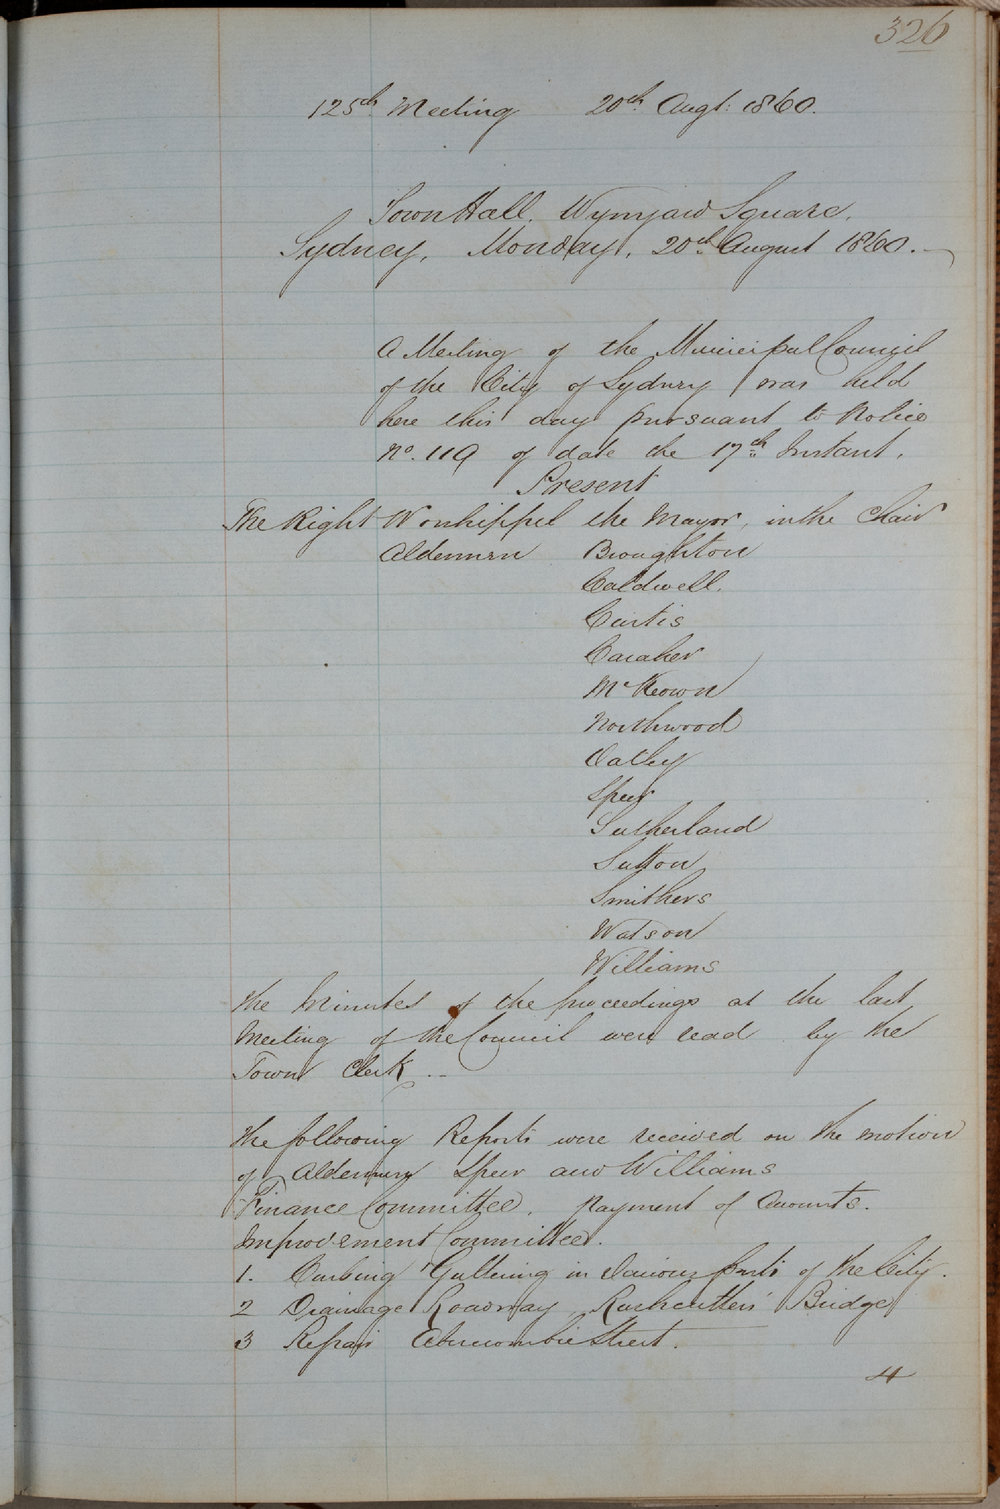 326
125th Meeting 20th Augt: 1860.
Town Hall. Wynyard Square.
Sydney, Monday, 20th August 1860.
A Meeting of the Municipal Council
of the City of Sydney was held
here this day pursuant to Notice
No. 119 of date the 17th Instant.
Present
The Right Worshipful the Mayor, in the Chair
Aldermen Broughton
Caldwell.
Curtis
Caraher
McKeown
Northwood
Oatley
Speer
Sutherland
Sutton
Smithers
Watson
Williams
The Minutes of the proceedings at the last
Meeting of the Council were read by the
Town Clerk ..
The following Reports were received on the motion
of Aldermen Speer and Williams
Finance Committee. Payment of Amounts.
Improvement Committee.
1. Curbing & Guttering in various parts of the City.
2 Drainage Roadway, Rushcutters' Bridge
3 Repair Abercombie Street.
4